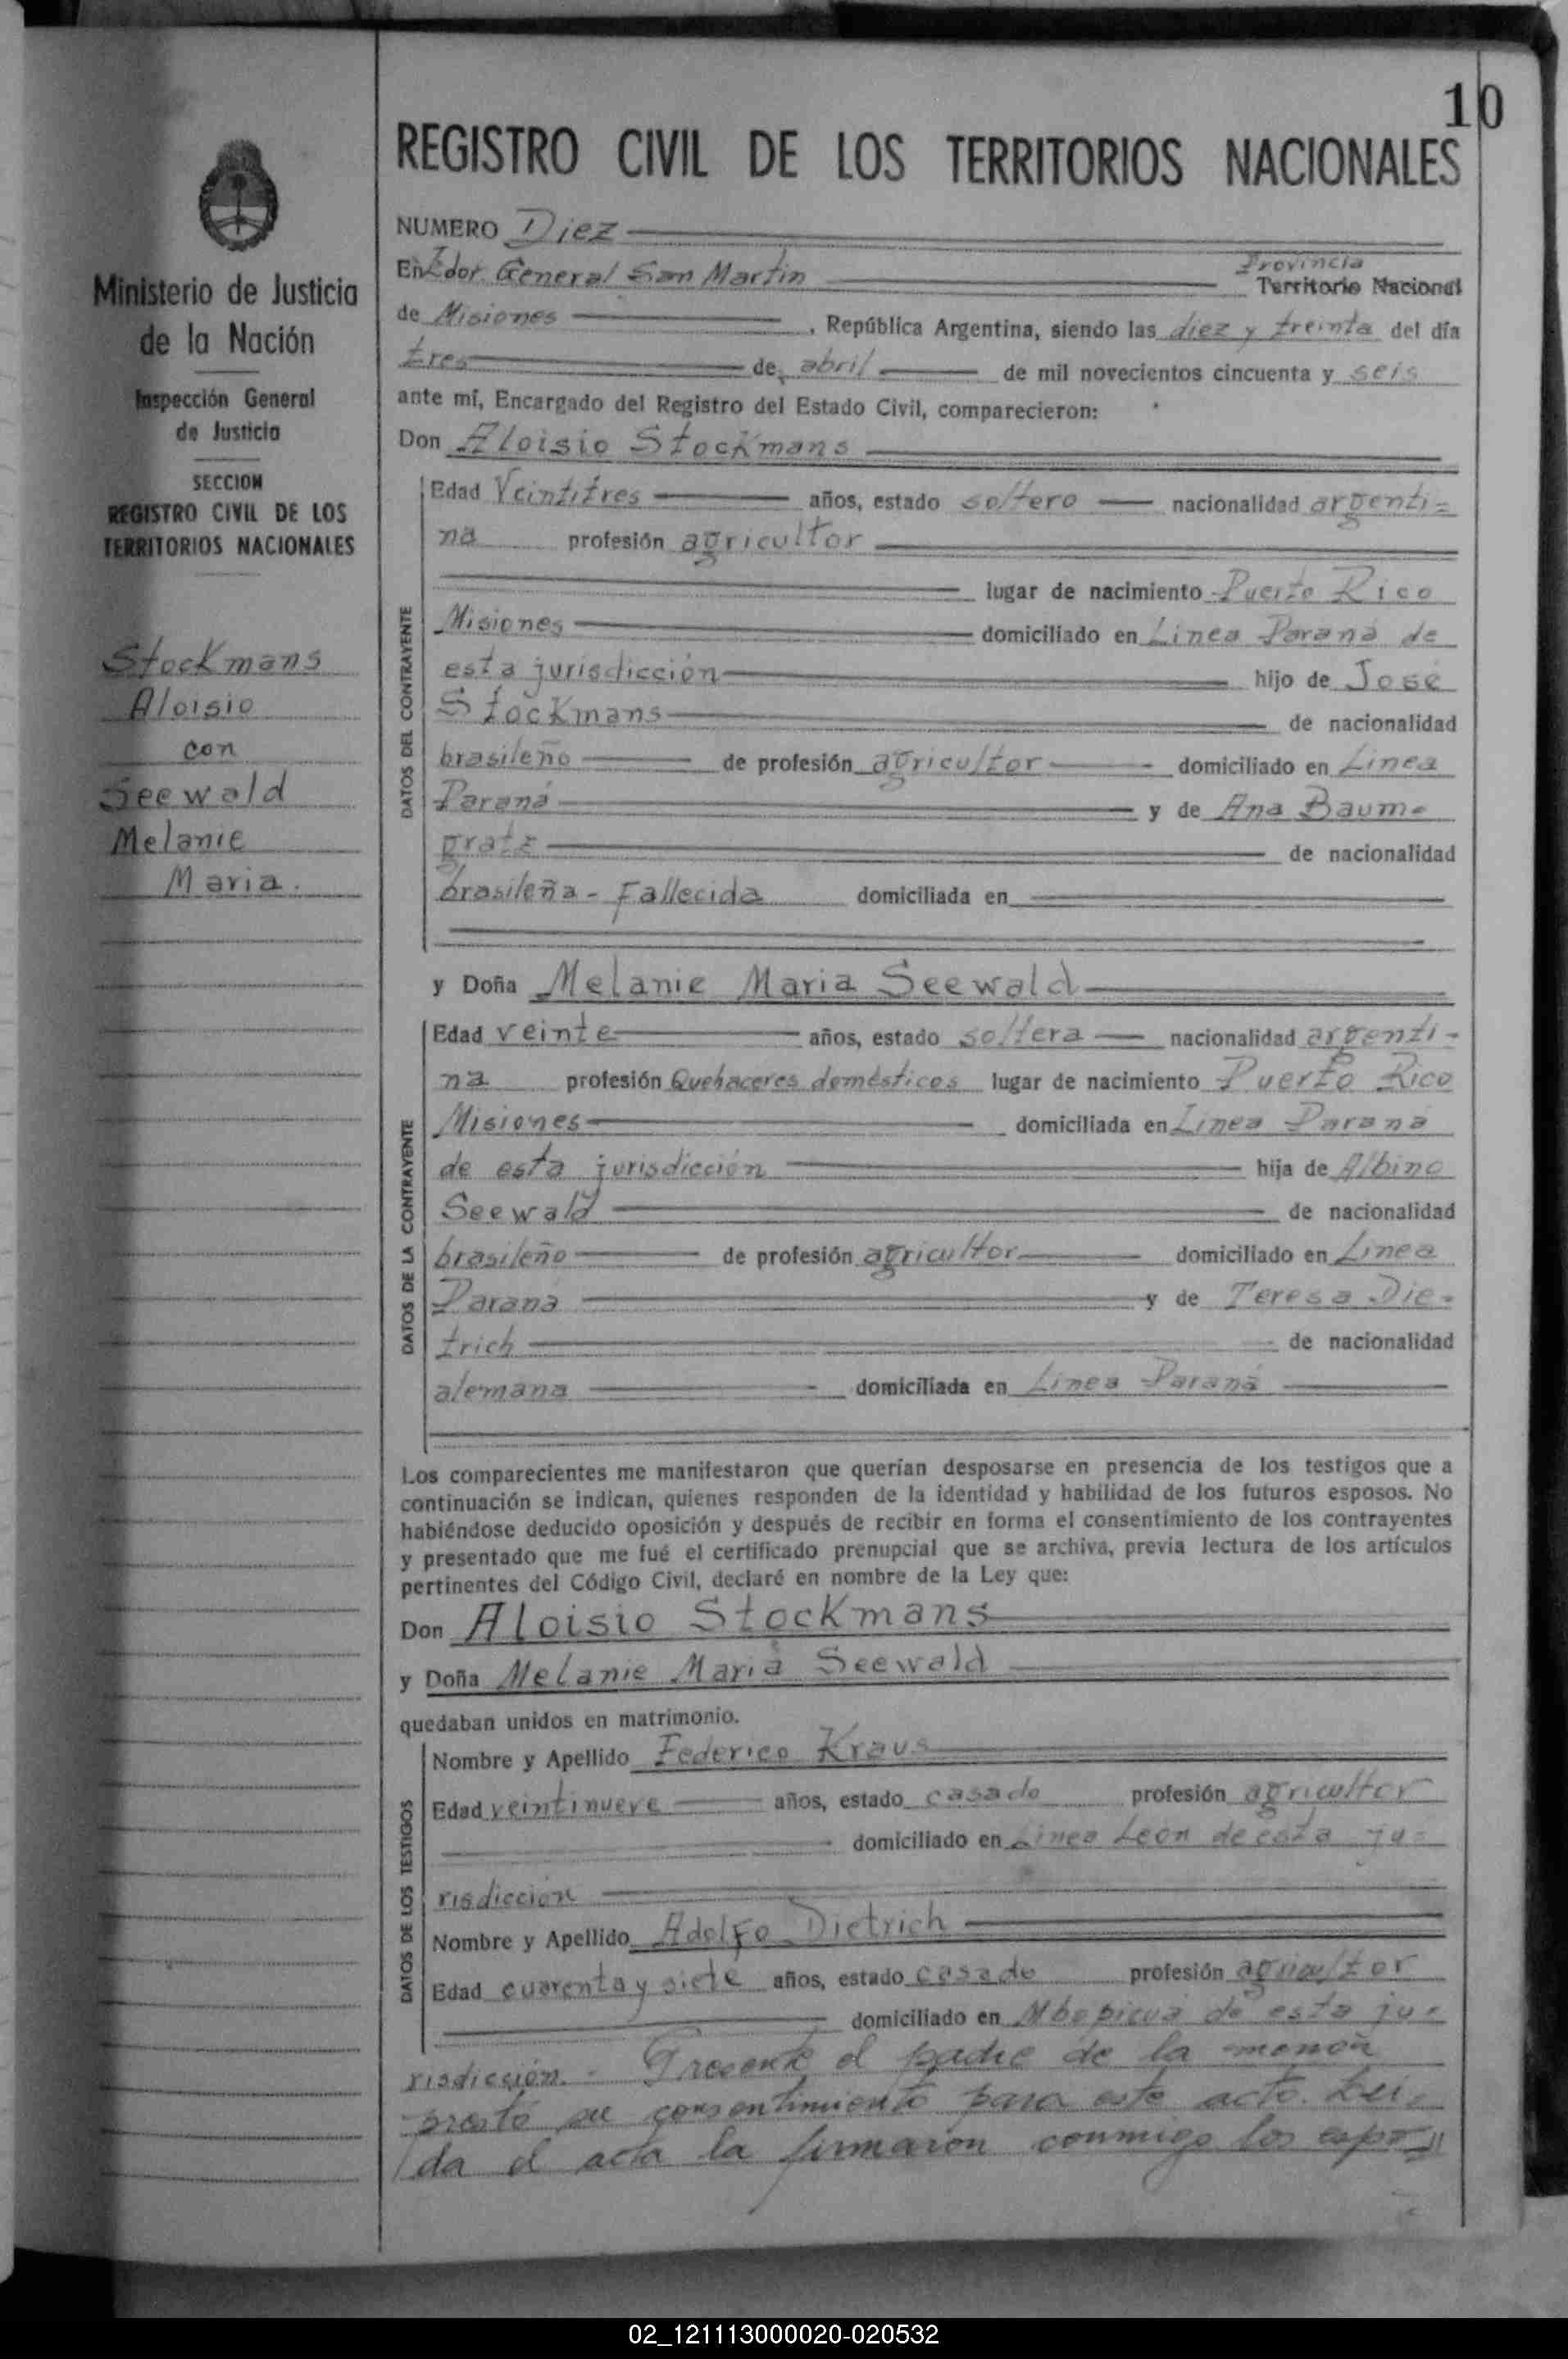 10
REGISTRO CIVIL DE LOS TERRITORIOS NACIONALES
NUMERO Diez
En Ldor. General San Martin Provincia Territorio Nacional
de Misiones , República Argentina, siendo las diez y treinta del día
tres de abril de mil novecientos cincuenta y seis
ante mí, Encargado del Registro del Estado Civil, comparecieron:
Don Aloisio Stockmans
DATOS DEL CONTRAYENTE
Edad Veintitres años, estado soltero nacionalidad argenti=
na profesión agricultor
lugar de nacimiento Puerto Rico
Misiones domiciliado en Linea Paraná de
esta jurisdicción hijo de José
Stockmans de nacionalidad
brasileño de profesión agricultor domiciliado en Linea
Paraná y de Ana Baum=
gratz de nacionalidad
brasileña - Fallecida domiciliada en
y Doña Melanie Maria Seewald
DATOS DE LA CONTRAYENTE
Edad veinte años, estado soltera nacionalidad argenti-
na profesión Quehaceres domésticos lugar de nacimiento Puerto Rico
Misiones domiciliada en Linea Paraná
de esta jurisdicción hija de Albino
Seewald de nacionalidad
brasileño de profesión agricultor domiciliado en Linea
Paraná y de Teresa Die-
trich de nacionalidad
alemana domiciliada en Linea Paraná
Los comparecientes me manifestaron que querían desposarse en presencia de los testigos que a
continuación se indican, quienes responden de la identidad y habilidad de los futuros esposos. No
habiéndose deducido oposición y después de recibir en forma el consentimiento de los contrayentes
y presentado que me fué el certificado prenupcial que se archiva, previa lectura de los artículos
pertinentes del Código Civil, declaré en nombre de la Ley que:
Don Aloisio Stockmans
y Doña Melanie Maria Seewald
quedaban unidos en matrimonio.
DATOS DE LOS TESTIGOS
Nombre y Apellido Federico Kraus
Edad veintinueve años, estado casado profesión agricultor
domiciliado en Linea León de esta ju=
risdicción
Nombre y Apellido Adolfo Dietrich
Edad cuarenta y siete años, estado casado profesión agricultor
domiciliado en Mbopicuá de esta ju=
risdicción.- Presente el padre de la menor
prestó su consentimiento para este acto. Leí=
da el acta la firmaron conmigo los espo=
Ministerio de Justicia
de la Nación
Inspección General
de Justicia
SECCION
REGISTRO CIVIL DE LOS
TERRITORIOS NACIONALES
Stockmans
Aloisio
con
Seewald
Melanie
Maria.
02_121113000020-020532